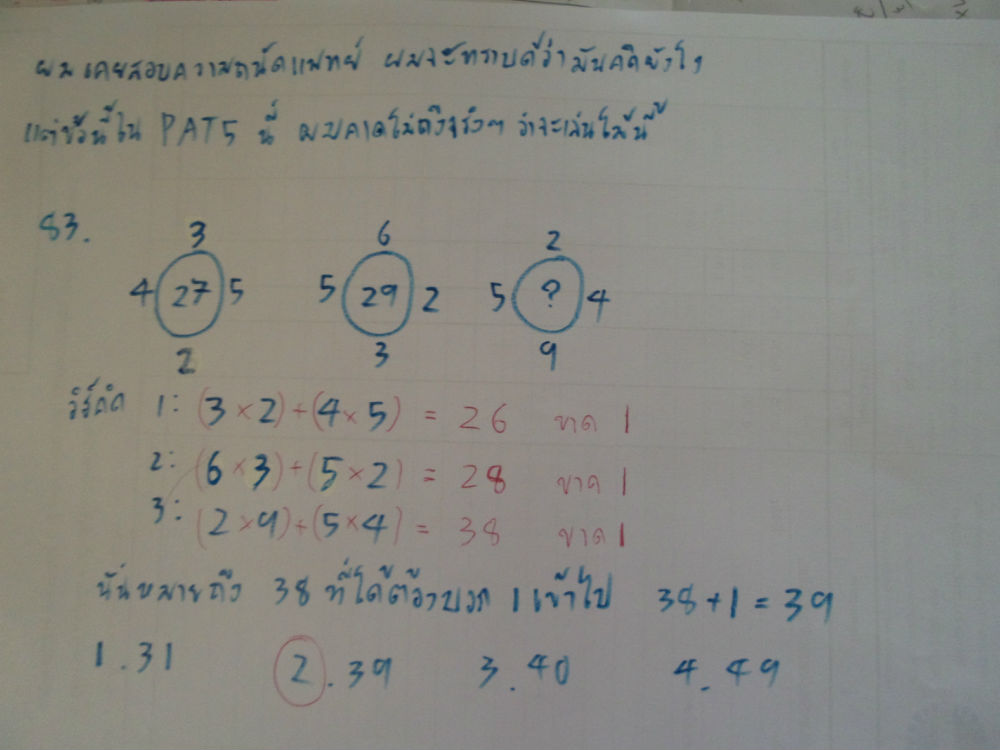 ผมเคยสอบความถนัดแพทย์ ผมจะทราบดีว่ามันคิดยังไง
แต่ข้อนี้ใน PAT5 นี้ ผมคาดไม่ถึงจริงๆ ว่าจะเล่นไม้นี้
83.
3 6 2
4 27 5 5 29 2 5 ? 4
2 3 9
วิธีคิด 1: (3×2)+(4×5) = 26 ขาด 1
2: (6×3)+(5×2) = 28 ขาด 1
3: (2×9)+(5×4) = 38 ขาด 1
นั่นหมายถึง 38 ที่ได้ต้องบวก 1 เข้าไป 38+1=39
1.31 2.39 3.40 4.49